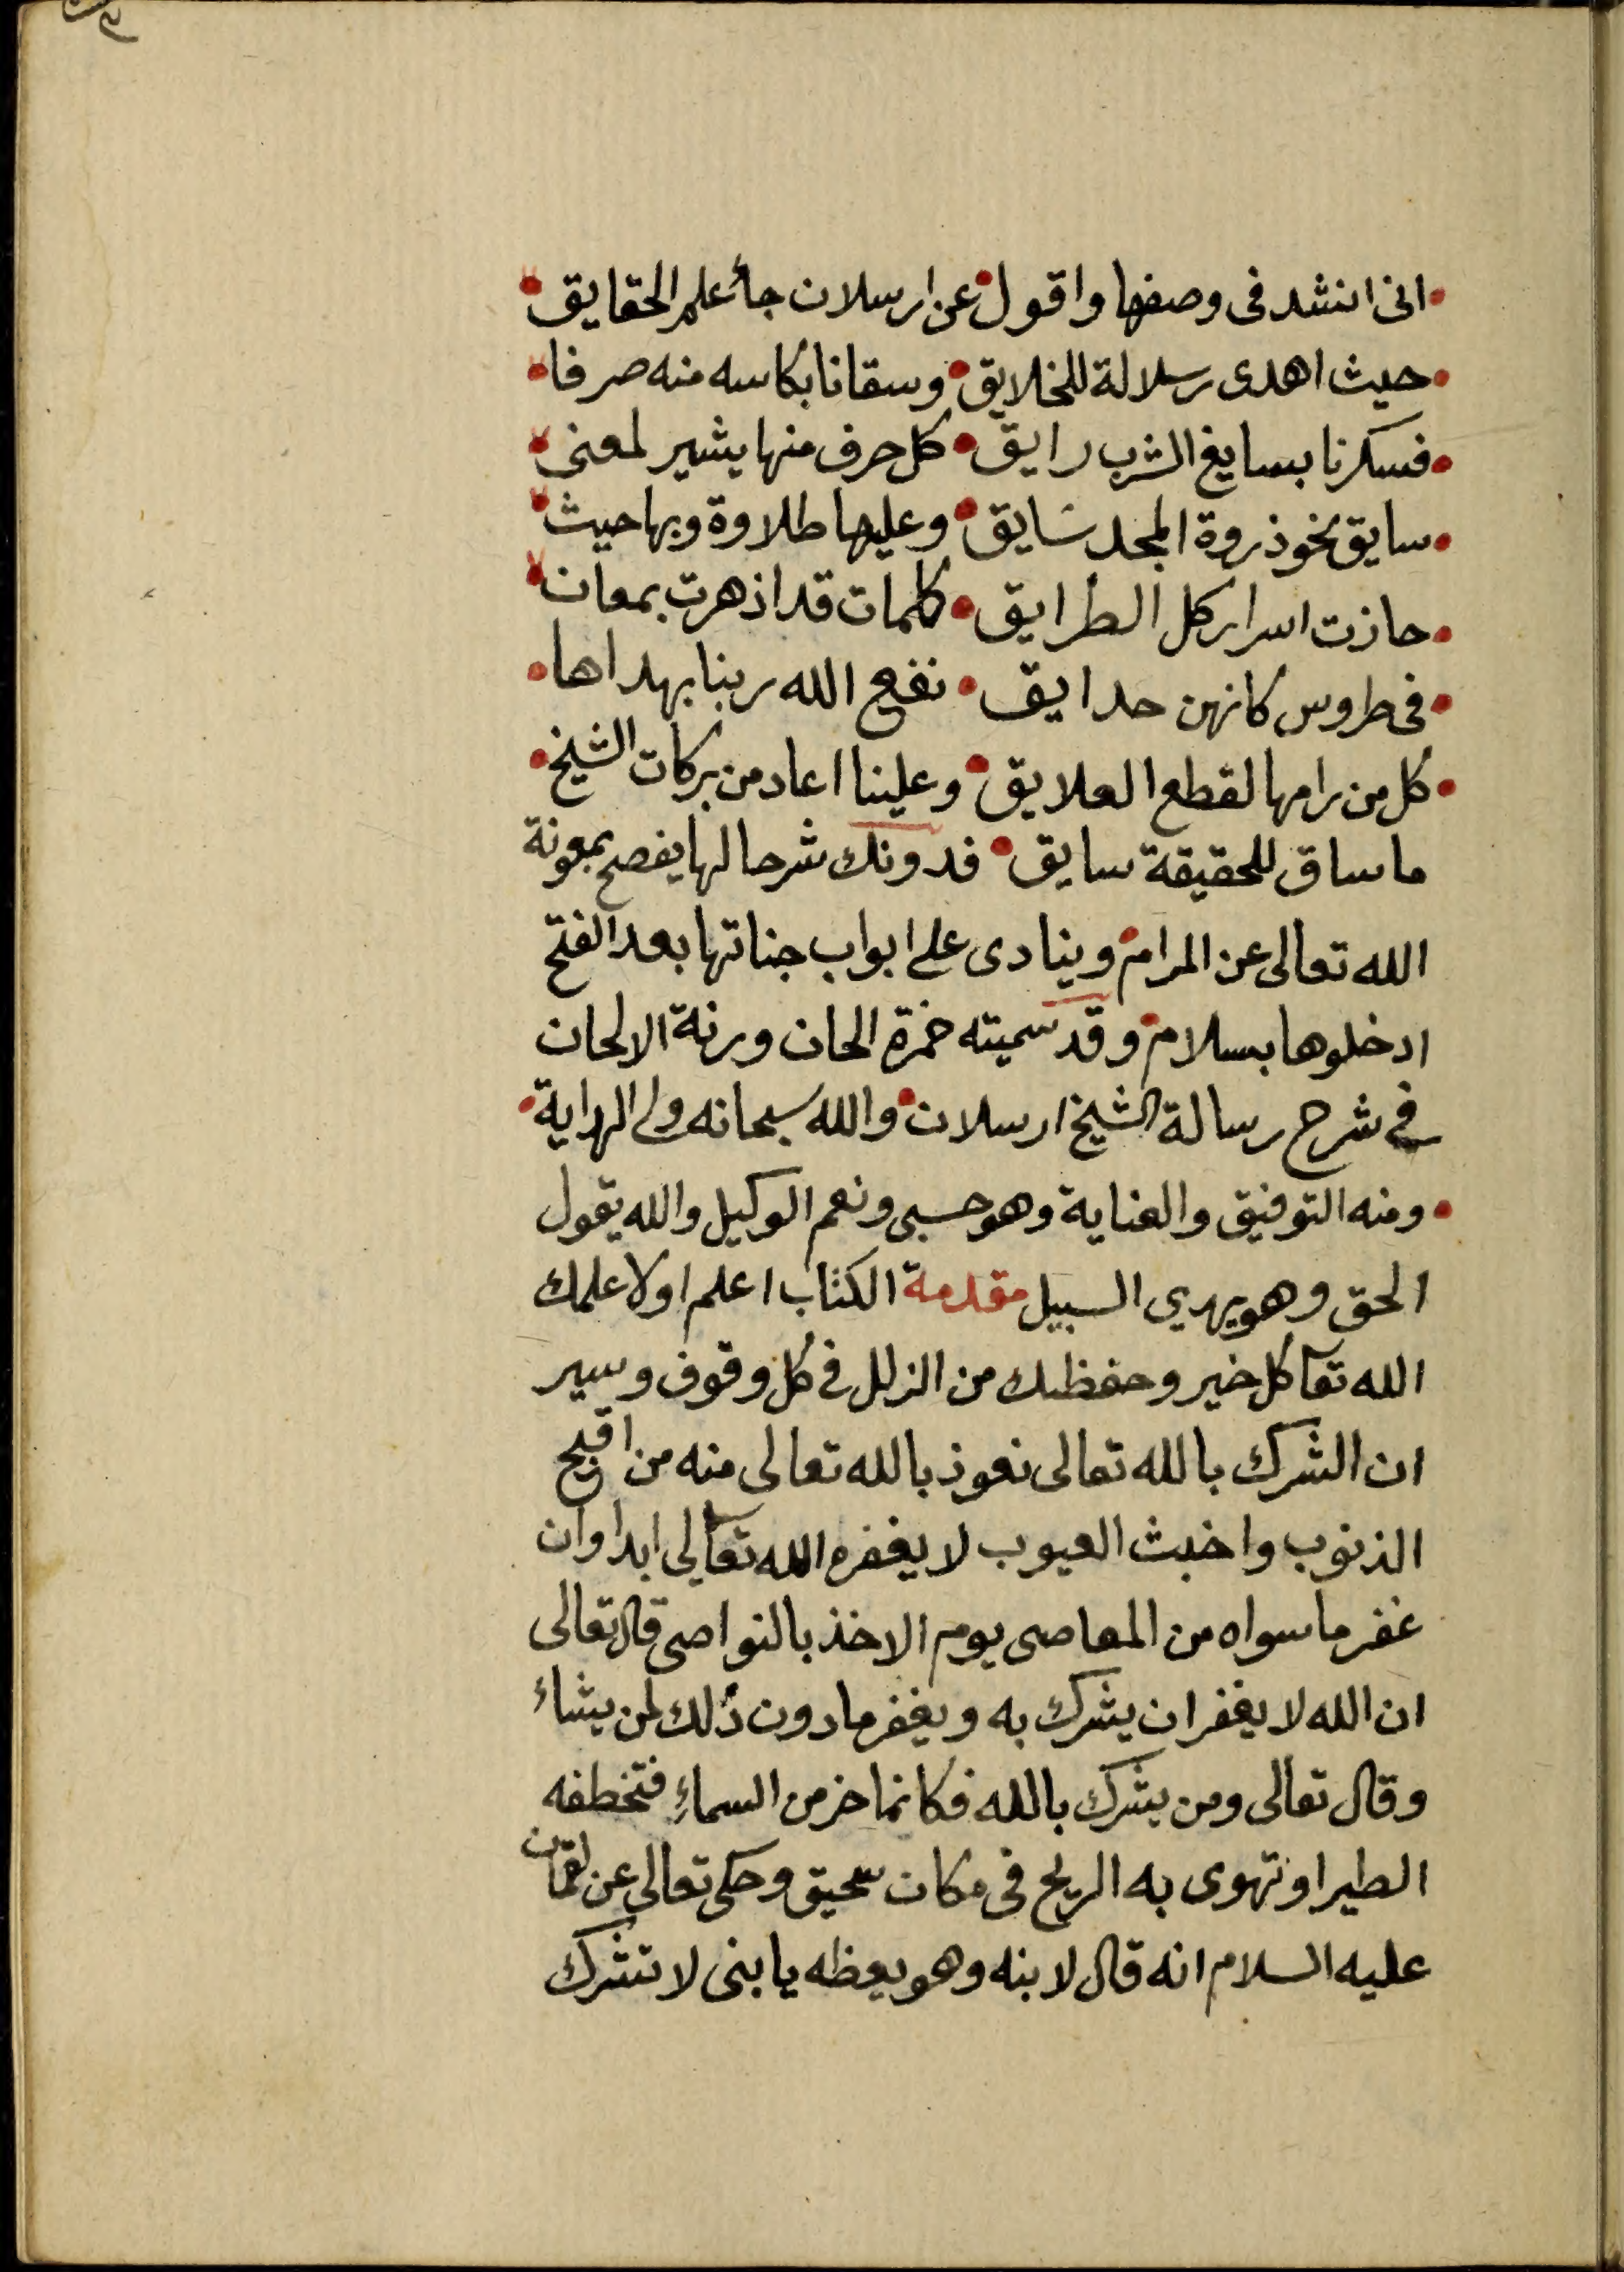 انى انشد فى وصفها واقول • عن ارسلان جأ علم الحقايق
حيث اهدى رسلالة للخلايق • وسقانا بكاسه منه صرفا
فسكرنا بسايغ الشرب رايق • كل حرف منها يشير لمعنى
سايق نحو ذروة المجد سَايق • وعليها طلاوة وبها حيث
حازت اسرار كل الطرايق • كلمات قد ازهرت بمعان
فى طروس كانهن حدايق • نفع الله ربنا بهداها
كل من رامها لقطع العلايق • وعلينا اعاد من بركات الشيخ
ما ساق للحقيقة سايق • فدونك شرحا لها يفصح بمعونة
الله تعالى عن المرام • وينادى على ابواب جناتها بعد الفتح
ادخلوها بسلام • وقد سميته خمرة الحان ورنة الالحان
فى شرح رسالة الشيخ ارسلان • والله سبحانه ولى الهداية
ومنه التوفيق والعناية وهو حسبى ونعم الوكيل والله يقول
الحق وهو يهدي السبيل مقدمة الكتاب اعلم اولا علمك
الله تعا كل خير وحفظك من الزلل فى كل وقوف وسير
ان الشرك بالله تعالى نعوذ بالله تعالى منه من اقبح
الذنوب واخبث العيوب لا يغفره الله تعالى ابدا وان
غفر ما سواه من المعاصى يوم الاخذ بالنواصى قال تعالى
ان الله لا يغفر ان يشرك به ويغفر ما دون ذلك لمن يشاء
وقال تعالى ومن يشرك بالله فكانما خر من السماءِ فتخطفه
الطير او تهوى به الريح فى مكان سحيق وحكى تعالى عن لقمان
عليه السلام انه قال لابنه وهو يعظه يا بنى لا تشرك